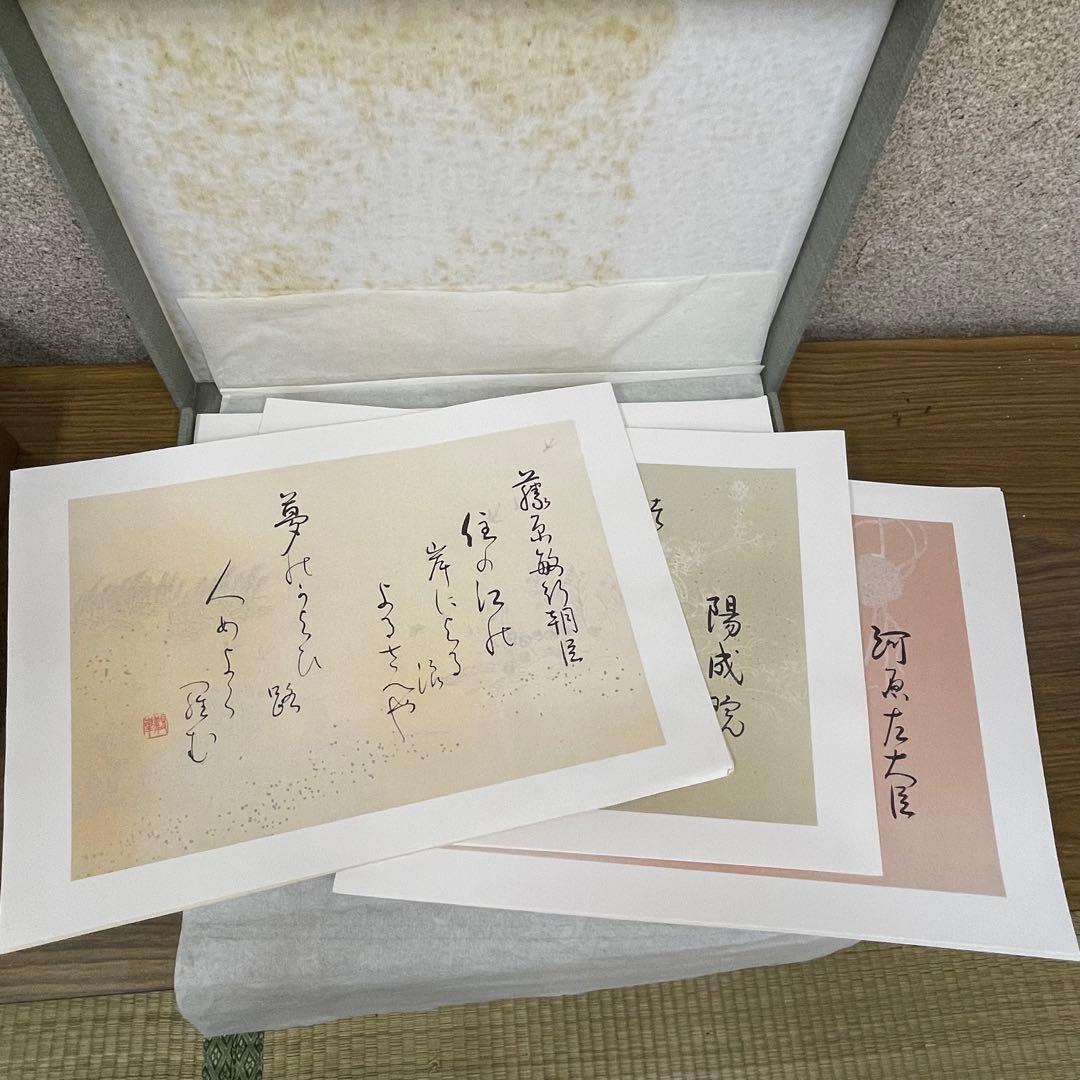 藤原敏行朝臣
住の江の
岸による浪
よるさへや
夢のかよひ路
人めよく羅む
陽成院
河原左大臣